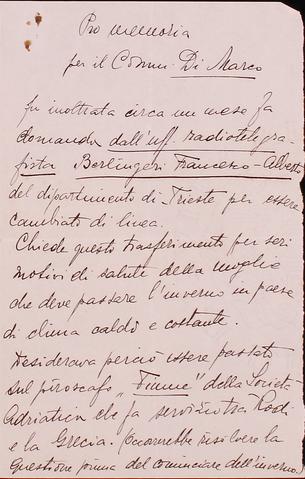 Pro memoria
per il Comm. Di Marco
fu inoltrata circa un mese fa
domanda dall'uff. radiotelegra-
fista Berlingeri Francesco-Alberto
del dipartimento di Trieste per essere
cambiato di linea.
Chiede questo trasferimento per seri
motivi di salute della moglie
che deve passare l'inverno in paese
di clima caldo e costante.
Desiderava perciò essere passato
sul piroscafo „Fiume" della Società
Adriatica che fa servizio tra Rodi
e la Grecia. (Occorrerebbe risolvere la
questione prima del cominciare dell'inverno.)